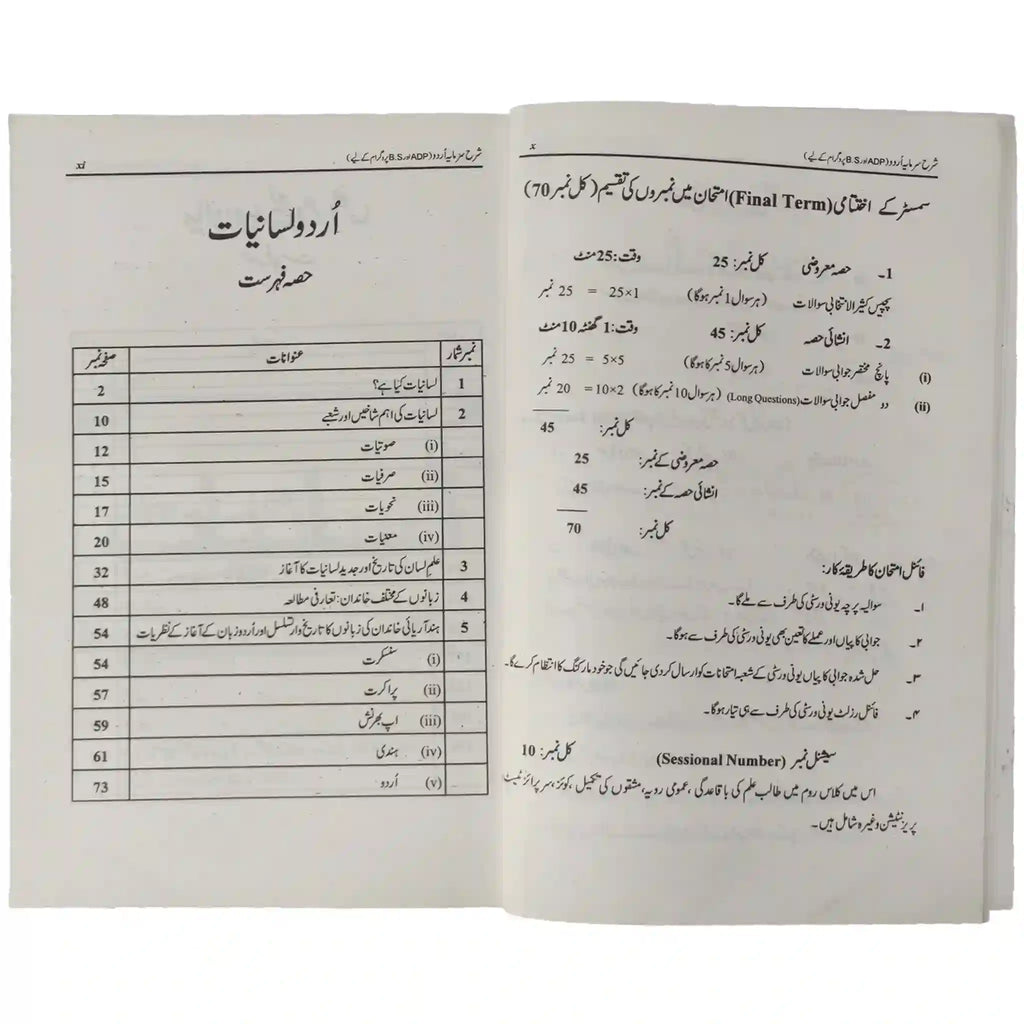 x شرح سرمایہ اُردو (ADP اور B.S پروگرام کے لیے)
سمسٹر کے اختتامی (Final Term) امتحان میں نمبروں کی تقسیم (کل نمبر 70)
1۔ حصہ معروضی کل نمبر: 25 وقت: 25 منٹ
پچیس کثیر الانتخابی سوالات (ہر سوال 1 نمبر ہوگا) 25×1 = 25 نمبر
2۔ انشائی حصہ کل نمبر: 45 وقت: 1 گھنٹہ 10 منٹ
(i) پانچ مختصر جوابی سوالات (ہر سوال 5 نمبر کا ہوگا) 5×5 = 25 نمبر
(ii) دو مفصل جوابی سوالات (Long Questions) (ہر سوال 10 نمبر کا ہوگا) 10×2 = 20 نمبر
کل نمبر: 45
حصہ معروضی کے نمبر: 25
انشائی حصہ کے نمبر: 45
کل نمبر: 70
فائنل امتحان کا طریقۂ کار:
۱۔ سوالیہ پرچہ یونی ورسٹی کی طرف سے ملے گا۔
۲۔ جوابی کاپیاں اور عملے کا تعین بھی یونی ورسٹی کی طرف سے ہوگا۔
۳۔ حل شدہ جوابی کاپیاں یونی ورسٹی کے شعبہ امتحانات کو ارسال کر دی جائیں گی جو خود مارکنگ کا انتظام کرے گا۔
۴۔ فائنل رزلٹ یونی ورسٹی کی طرف سے ہی تیار ہوگا۔
سیشنل نمبر (Sessional Number) کل نمبر: 10
اس میں کلاس روم میں طالب علم کی باقاعدگی، عمومی رویہ، مشقوں کی تکمیل، کوئز، سرپرائز ٹیسٹ
پریزنٹیشن وغیرہ شامل ہیں۔
شرح سرمایہ اُردو (ADP اور B.S پروگرام کے لیے) xi
اُردو لسانیات
حصہ فہرست
نمبر شمار عنوانات صفحہ نمبر
1 لسانیات کیا ہے؟ 2
2 لسانیات کی اہم شاخیں اور شعبے 10
(i) صوتیات 12
(ii) صرفیات 15
(iii) نحویات 17
(iv) معنیات 20
3 علم لسان کی تاریخ اور جدید لسانیات کا آغاز 32
4 زبانوں کے مختلف خاندان: تعارفی مطالعہ 48
5 ہند آریائی خاندان کی زبانوں کا تاریخ وار تسلسل اور اُردو زبان کے آغاز کے نظریات 54
(i) سنسکرت 54
(ii) پراکرت 57
(iii) اپ بھرنش 59
(iv) ہندی 61
(v) اُردو 73